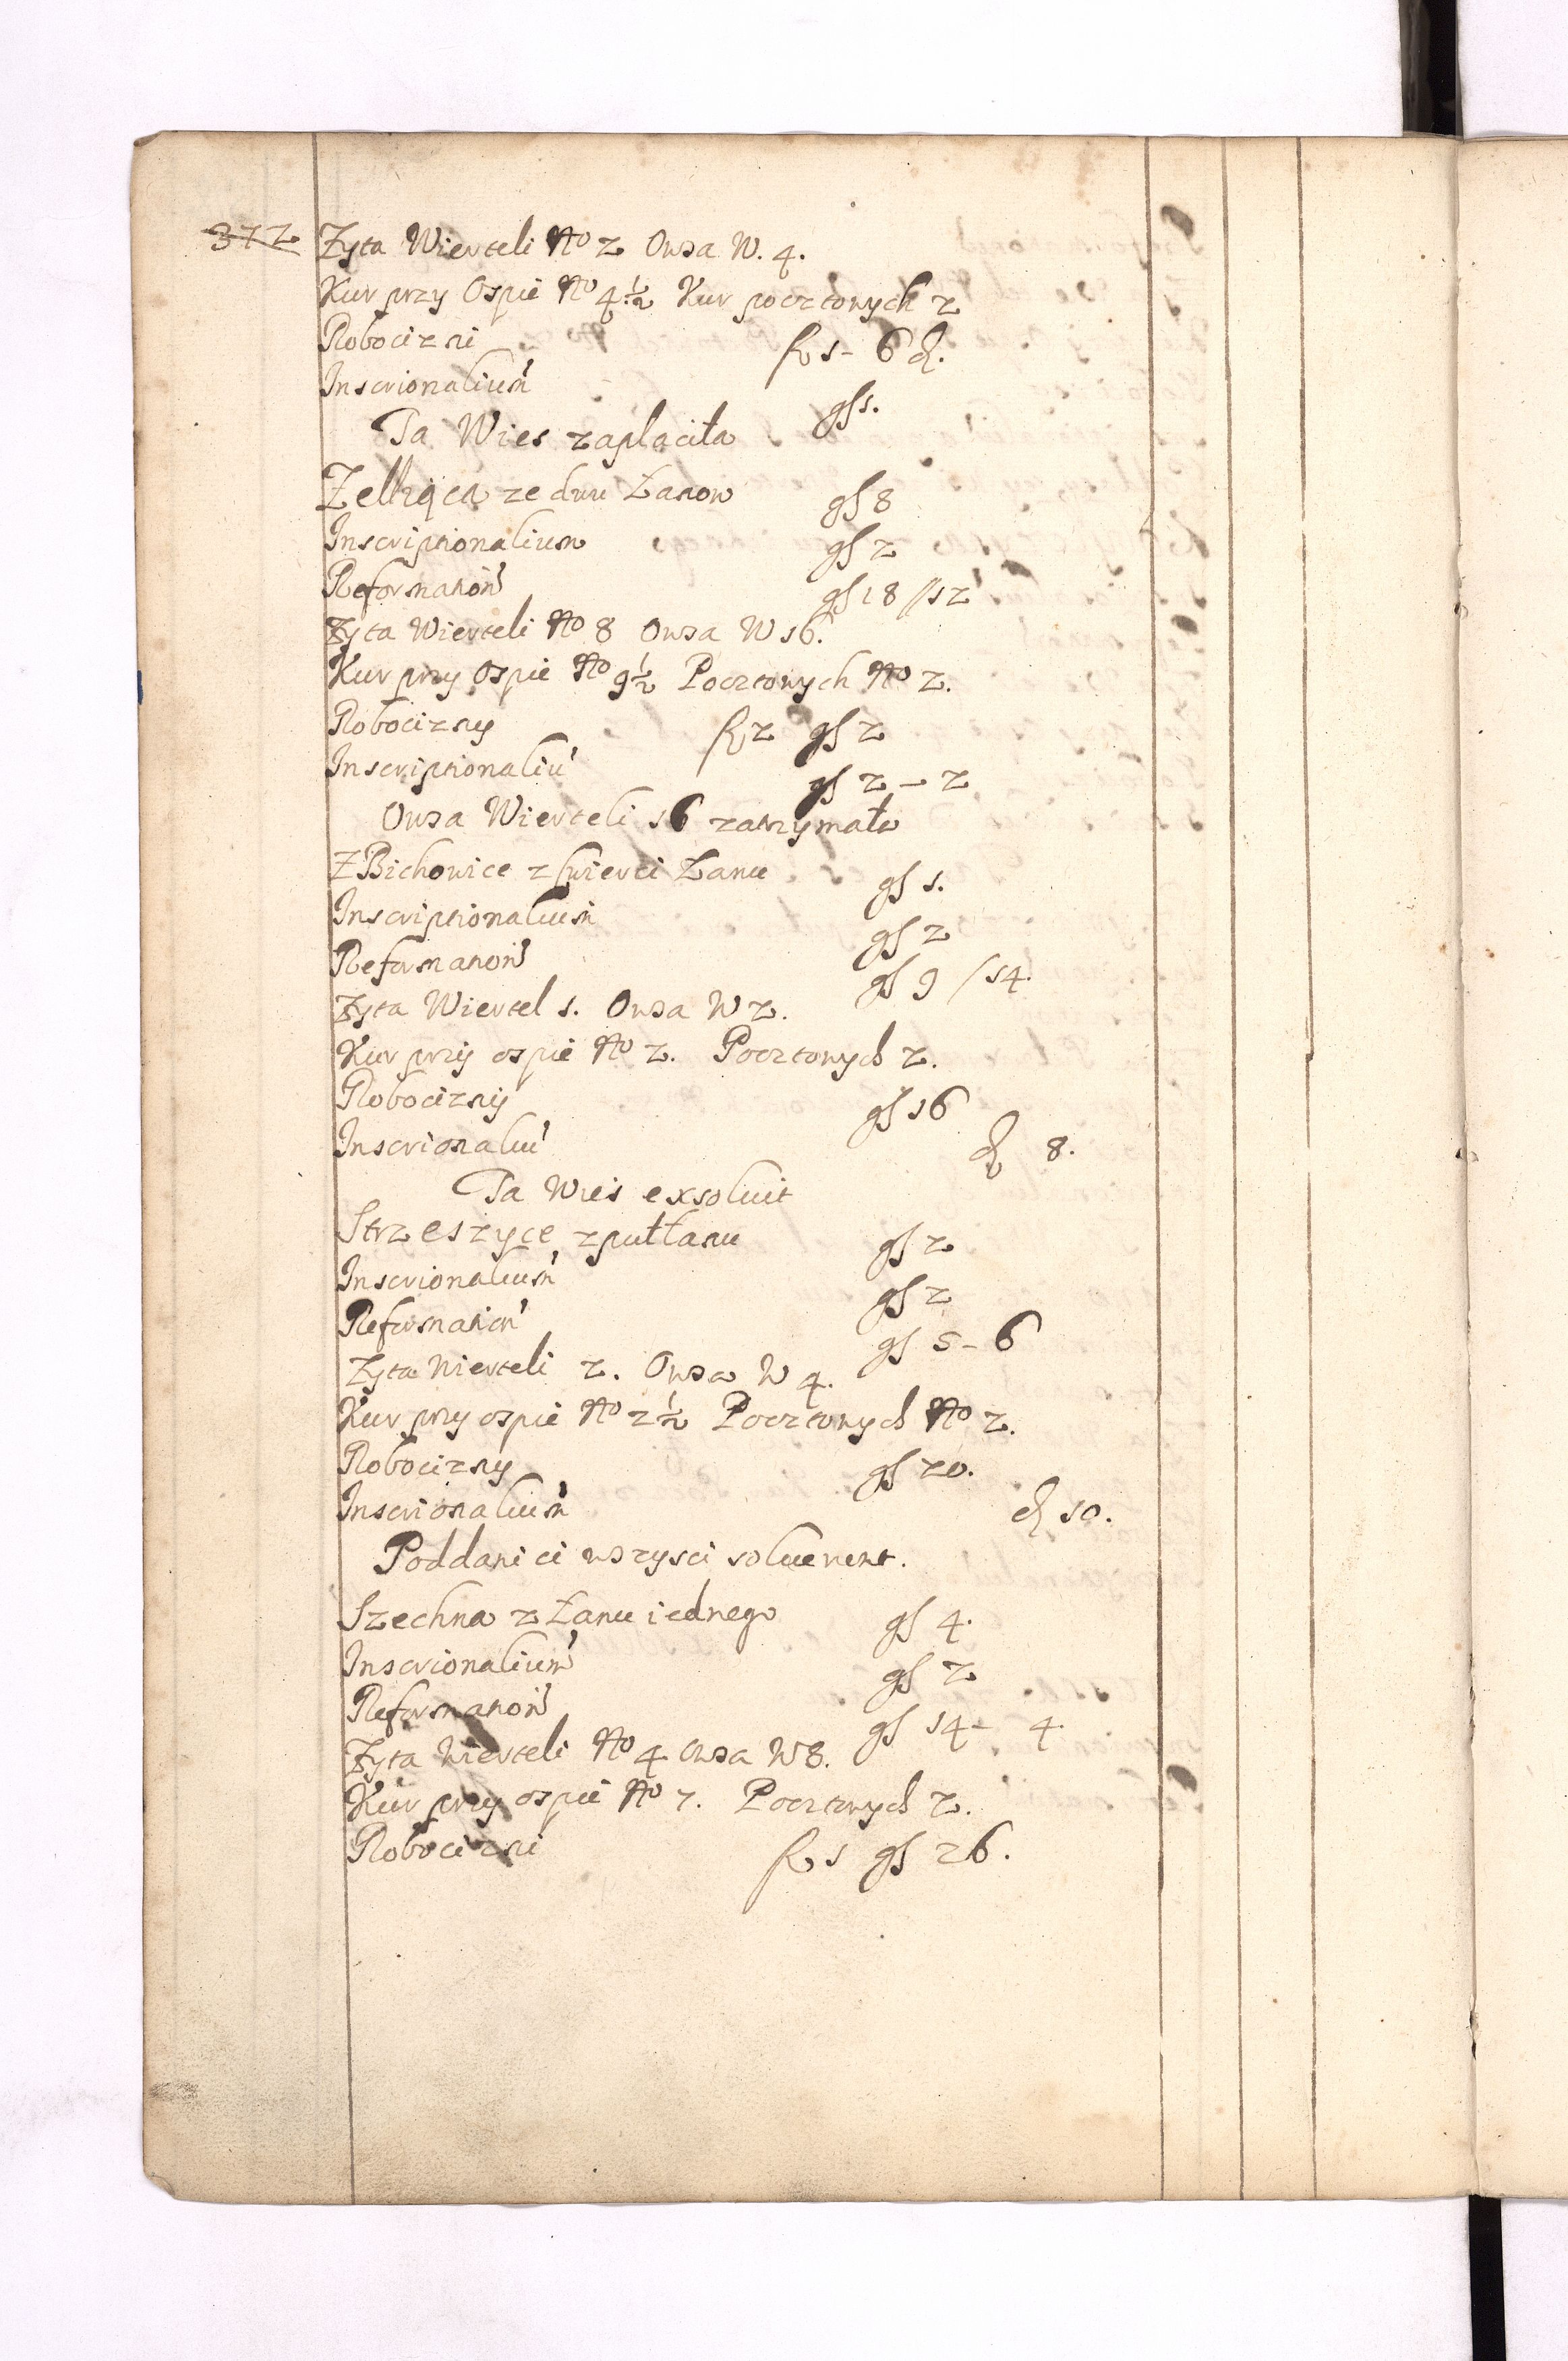 372
Zyta Wierteli No 2 Owsa W. 4.
Kur przy Ospie No 4½ Kur pocztowych 2
Robocizni fl 1 - 6 d.
Inscrionalium gs 1.
Ta Wies zaplaciła
Zelkąca ze dwu Łanow gs 8
Inscriptionalium gs 2
Reformation gs 18 // 12
Zyta Wierteli No 8 Owsa W 16.
Kur przy Ospie No 9½ Pocztowych No 2.
Robocizny fl 2 gs 2
Inscriptionaliu gs 2 - 2
Owsa Wierteli 16 zatrzymała
Z Bichowice z cwierci Łanu gs 1.
Inscriptionalium gs 2
Reformation gs 9 / 14.
Zyta Wiertel 1. Owsa W 2.
Kur przy ospie No 2. Pocztowych 2.
Robocizny gs 16
Inscrionaliu d 8.
Ta Wies exsoluit
Strzeszyce z puł łanu gs 2
Inscrionalium gs 2
Reformation gs 5 - 6
Zyta Wierteli 2. Owsa W 4.
Kur przy ospie No 2½ Pocztowych No 2.
Robocizny gs 20.
Inscrionalium d 10.
Poddani ci wszysci soluerunt.
Szechna z Łanu iednego gs 4.
Inscrionalium gs 2
Reformation gs 14 - 4.
Zyta Wierteli No 4 Owsa W 8.
Kur przy ospie No 7. Pocztowych 2.
Robocizni fl 1 gs 26.